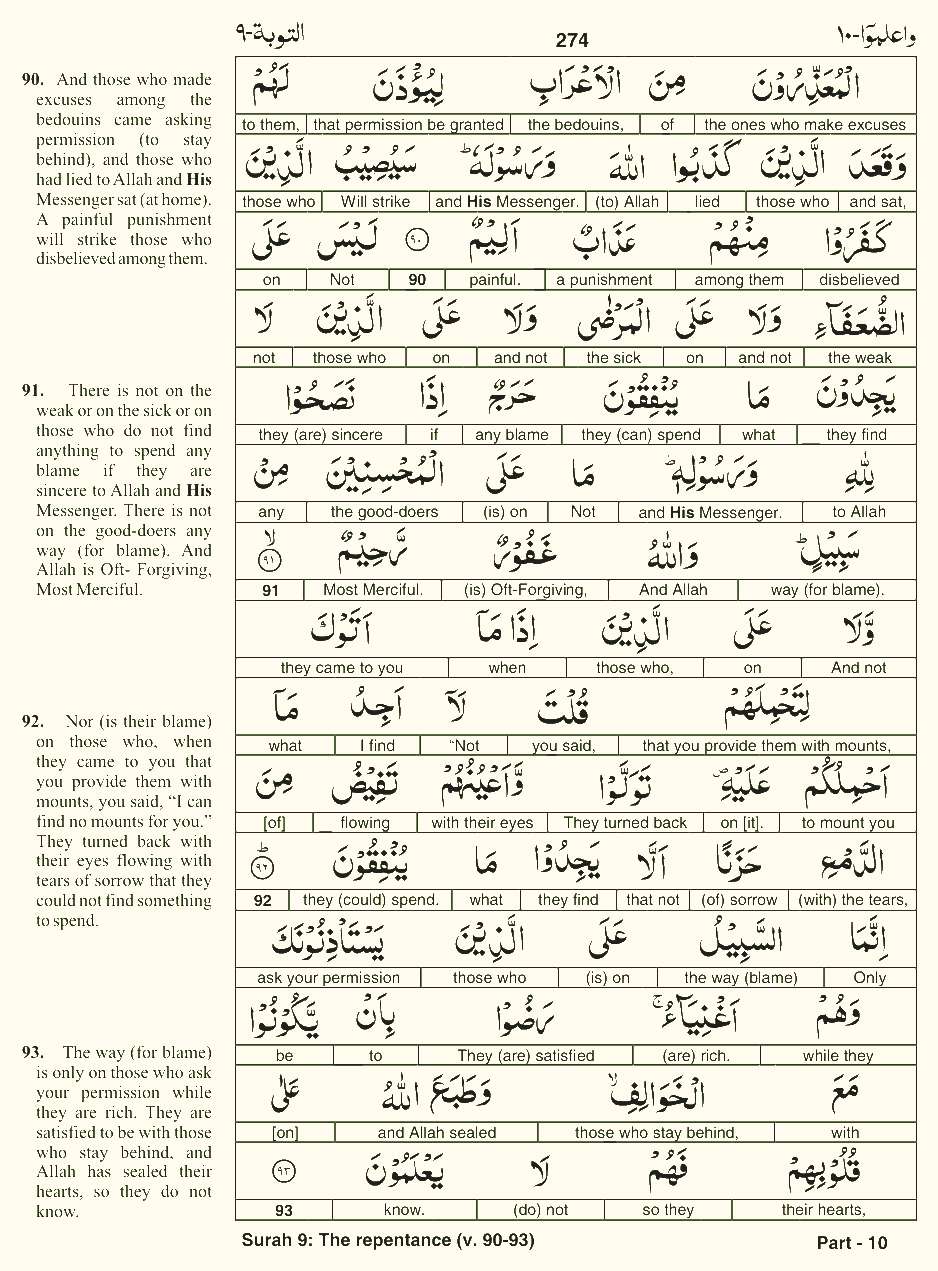 التوبة-٩
274
واعلموٓا-١٠
90. And those who made
excuses among the
bedouins came asking
permission (to stay
behind), and those who
had lied to Allah and His
Messenger sat (at home).
A painful punishment
will strike those who
disbelieved among them.
91. There is not on the
weak or on the sick or on
those who do not find
anything to spend any
blame if they are
sincere to Allah and His
Messenger. There is not
on the good-doers any
way (for blame). And
Allah is Oft- Forgiving,
Most Merciful.
92. Nor (is their blame)
on those who, when
they came to you that
you provide them with
mounts, you said, “I can
find no mounts for you.”
They turned back with
their eyes flowing with
tears of sorrow that they
could not find something
to spend.
93. The way (for blame)
is only on those who ask
your permission while
they are rich. They are
satisfied to be with those
who stay behind, and
Allah has sealed their
hearts, so they do not
know.
الْمُعَذِّرُوْنَ مِنَ الْاَعْرَابِ لِيُؤْذَنَ لَهُمْ
to them, that permission be granted the bedouins, of the ones who make excuses
وَقَعَدَ الَّذِيْنَ كَذَبُوا اللّٰهَ وَرَسُوْلَهٗ ؕ سَيُصِيْبُ الَّذِيْنَ
those who Will strike and His Messenger. (to) Allah lied those who and sat,
كَفَرُوْا مِنْهُمْ عَذَابٌ اَلِيْمٌ ٩٠ لَيْسَ عَلَى
on Not 90 painful. a punishment among them disbelieved
الضُّعَفَآءِ وَلَا عَلَى الْمَرْضٰى وَلَا عَلَى الَّذِيْنَ لَا
not those who on and not the sick on and not the weak
يَجِدُوْنَ مَا يُنْفِقُوْنَ حَرَجٌ اِذَا نَصَحُوْا
they (are) sincere if any blame they (can) spend what they find
لِلّٰهِ وَرَسُوْلِهٖ ؕ مَا عَلَى الْمُحْسِنِيْنَ مِنْ
any the good-doers (is) on Not and His Messenger. to Allah
سَبِيْلٍ ؕ وَاللّٰهُ غَفُوْرٌ رَّحِيْمٌ ٩١ ۙ
91 Most Merciful. (is) Oft-Forgiving, And Allah way (for blame).
وَّلَا عَلَى الَّذِيْنَ اِذَا مَآ اَتَوْكَ
they came to you when those who, on And not
لِتَحْمِلَهُمْ قُلْتَ لَآ اَجِدُ مَآ
what I find “Not you said, that you provide them with mounts,
اَحْمِلُكُمْ عَلَيْهِ ۪ تَوَلَّوْا وَّاَعْيُنُهُمْ تَفِيْضُ مِنَ
[of] flowing with their eyes They turned back on [it]. to mount you
الدَّمْعِ حَزَنًا اَلَّا يَجِدُوْا مَا يُنْفِقُوْنَ ٩٢ ؕ
92 they (could) spend. what they find that not (of) sorrow (with) the tears,
اِنَّمَا السَّبِيْلُ عَلَى الَّذِيْنَ يَسْتَاْذِنُوْنَكَ
ask your permission those who (is) on the way (blame) Only
وَهُمْ اَغْنِيَآءُ ۚ رَضُوْا بِاَنْ يَّكُوْنُوْا
be to They (are) satisfied (are) rich. while they
مَعَ الْخَوَالِفِ ۙ وَطَبَعَ اللّٰهُ عَلٰى
[on] and Allah sealed those who stay behind, with
قُلُوْبِهِمْ فَهُمْ لَا يَعْلَمُوْنَ ٩٣
93 know. (do) not so they their hearts,
Surah 9: The repentance (v. 90-93)
Part - 10